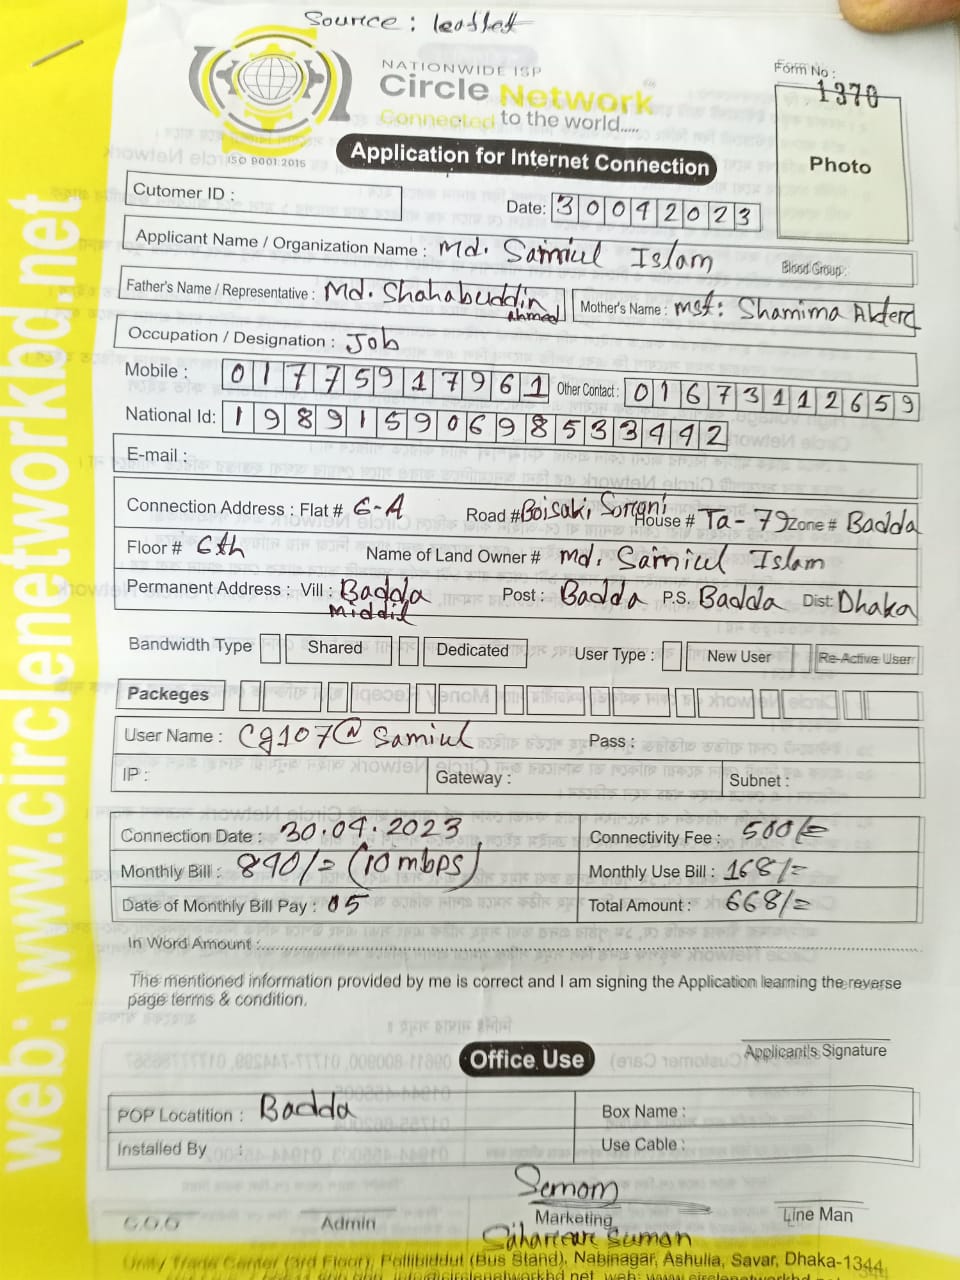 Source: leaflet
NATIONWIDE ISP
Circle Network
Connected to the world.....
ISO 9001:2015
Form No :
1370
Photo
Application for Internet Connection
Cutomer ID :
Date: 30042023
Applicant Name / Organization Name : Md. Samiul Islam
Blood Group:
Father's Name / Representative : Md. Shahabuddin Ahmed
Mother's Name : Mst: Shamima Akterd
Occupation / Designation : Job
Mobile : 01775917961 Other Contact : 01673112659
National Id: 19891590698533442
E-mail :
Connection Address : Flat # 6-A Road # Boisaki Soroni House # Ta-79 Zone # Badda
Floor # 6th Name of Land Owner # Md. Samiul Islam
Permanent Address : Vill : Badda Middil Post : Badda P.S. Badda Dist: Dhaka
Bandwidth Type Shared Dedicated User Type : New User Re-Active User
Packeges
User Name : Cg107@Samiul Pass :
IP : Gateway : Subnet :
Connection Date : 30.04.2023 Connectivity Fee : 500/=
Monthly Bill : 840/= (10 mbps) Monthly Use Bill : 168/=
Date of Monthly Bill Pay : 05 Total Amount : 668/=
In Word Amount :
The mentioned information provided by me is correct and I am signing the Application learning the reverse
page terms & condition.
Applicant's Signature
Office Use
POP Locatition : Badda Box Name :
Installed By : Use Cable :
Admin Marketing Line Man
Suman
Unity Trade Center (3rd Floor), Pollibiddut (Bus Stand), Nabinagar, Ashulia, Savar, Dhaka-1344
web: www.circlenetworkbd.net